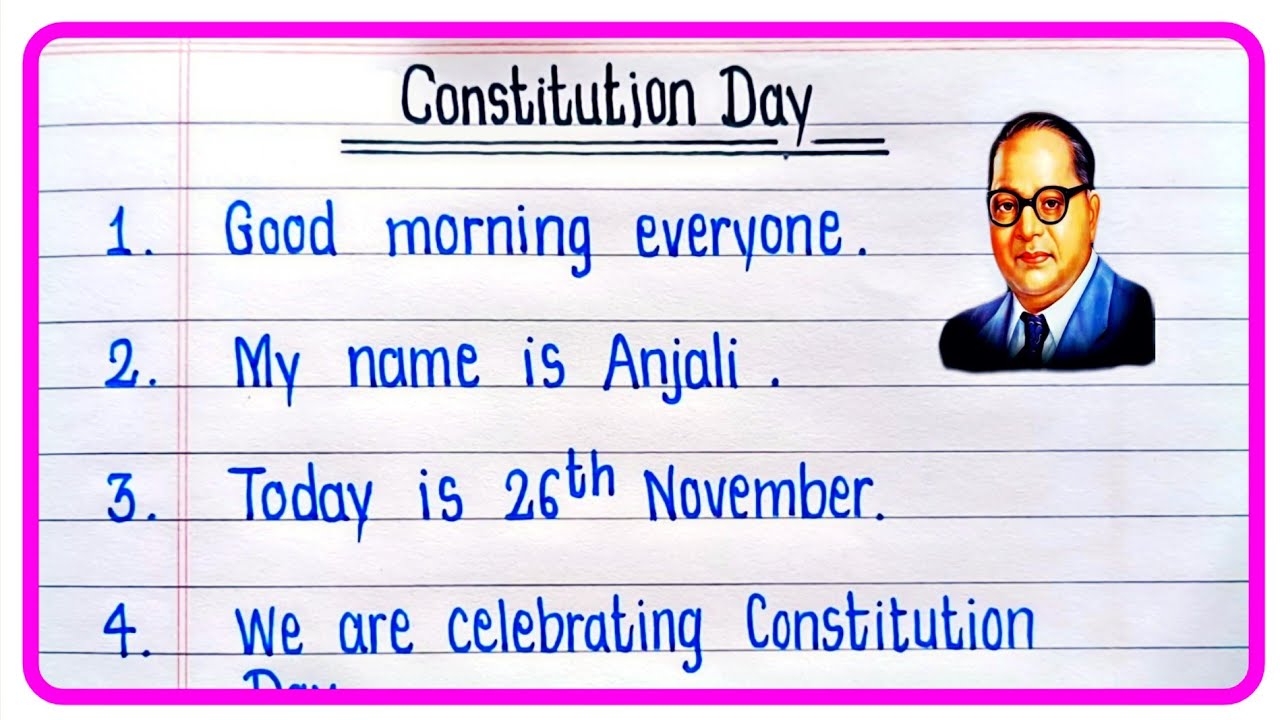 Constitution Day
1. Good morning everyone.
2. My name is Anjali.
3. Today is 26th November.
4. We are celebrating Constitution
Day